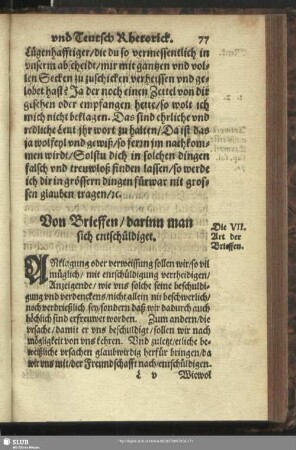 vnd Teutsch Rhetorick. 77
Lügenhafftiger/die du so vermessentlich in
vnserm abscheidt/mir mit gantzen vnd vol-
len Secken zu zuschicken verheissen vnd ge-
lobet hast? Ja der noch einen Zettel von dir
gesehen oder empfangen hette/so wolt ich
mich nicht beklagen. Das sind ehrliche vnd
redliche leut jhr wort zu halten/Da ist das
ja wol feyl vnd gewiß/so ferrn jm nachkom-
men wirdt/Solstu dich in solchen dingen
falsch vnd trewloß finden lassen/so werde
ich dir in grössern dingen fürwar nit gros-
sen glauben tragen/ꝛc.
Von Brieffen/darinn man
sich entschüldiget.
Die VII.
Art der
Brieffen.
ANklagung oder verweissung sollen wir/so vil
müglich/mit entschüldigung verrheidigen/
Anzeigende/wie vns solche seine beschuldi-
gung vnd verdenckens/nicht allein nit beschwerlich/
noch verdrießlich sey/sondern daß wir dadurch auch
höchlich sind erfreuwet worden. Zum andern/die
vrsache/damit er vns beschuldigt/sollen wir nach
mögligkeit von vns kehren. Vnd zuletzt/etliche be-
weißliche vrsachen glaubwirdig herfür bringen/da
wir vns mit/der Freundschafft nach/entschüldigen.
L v Wiewol
SLUB